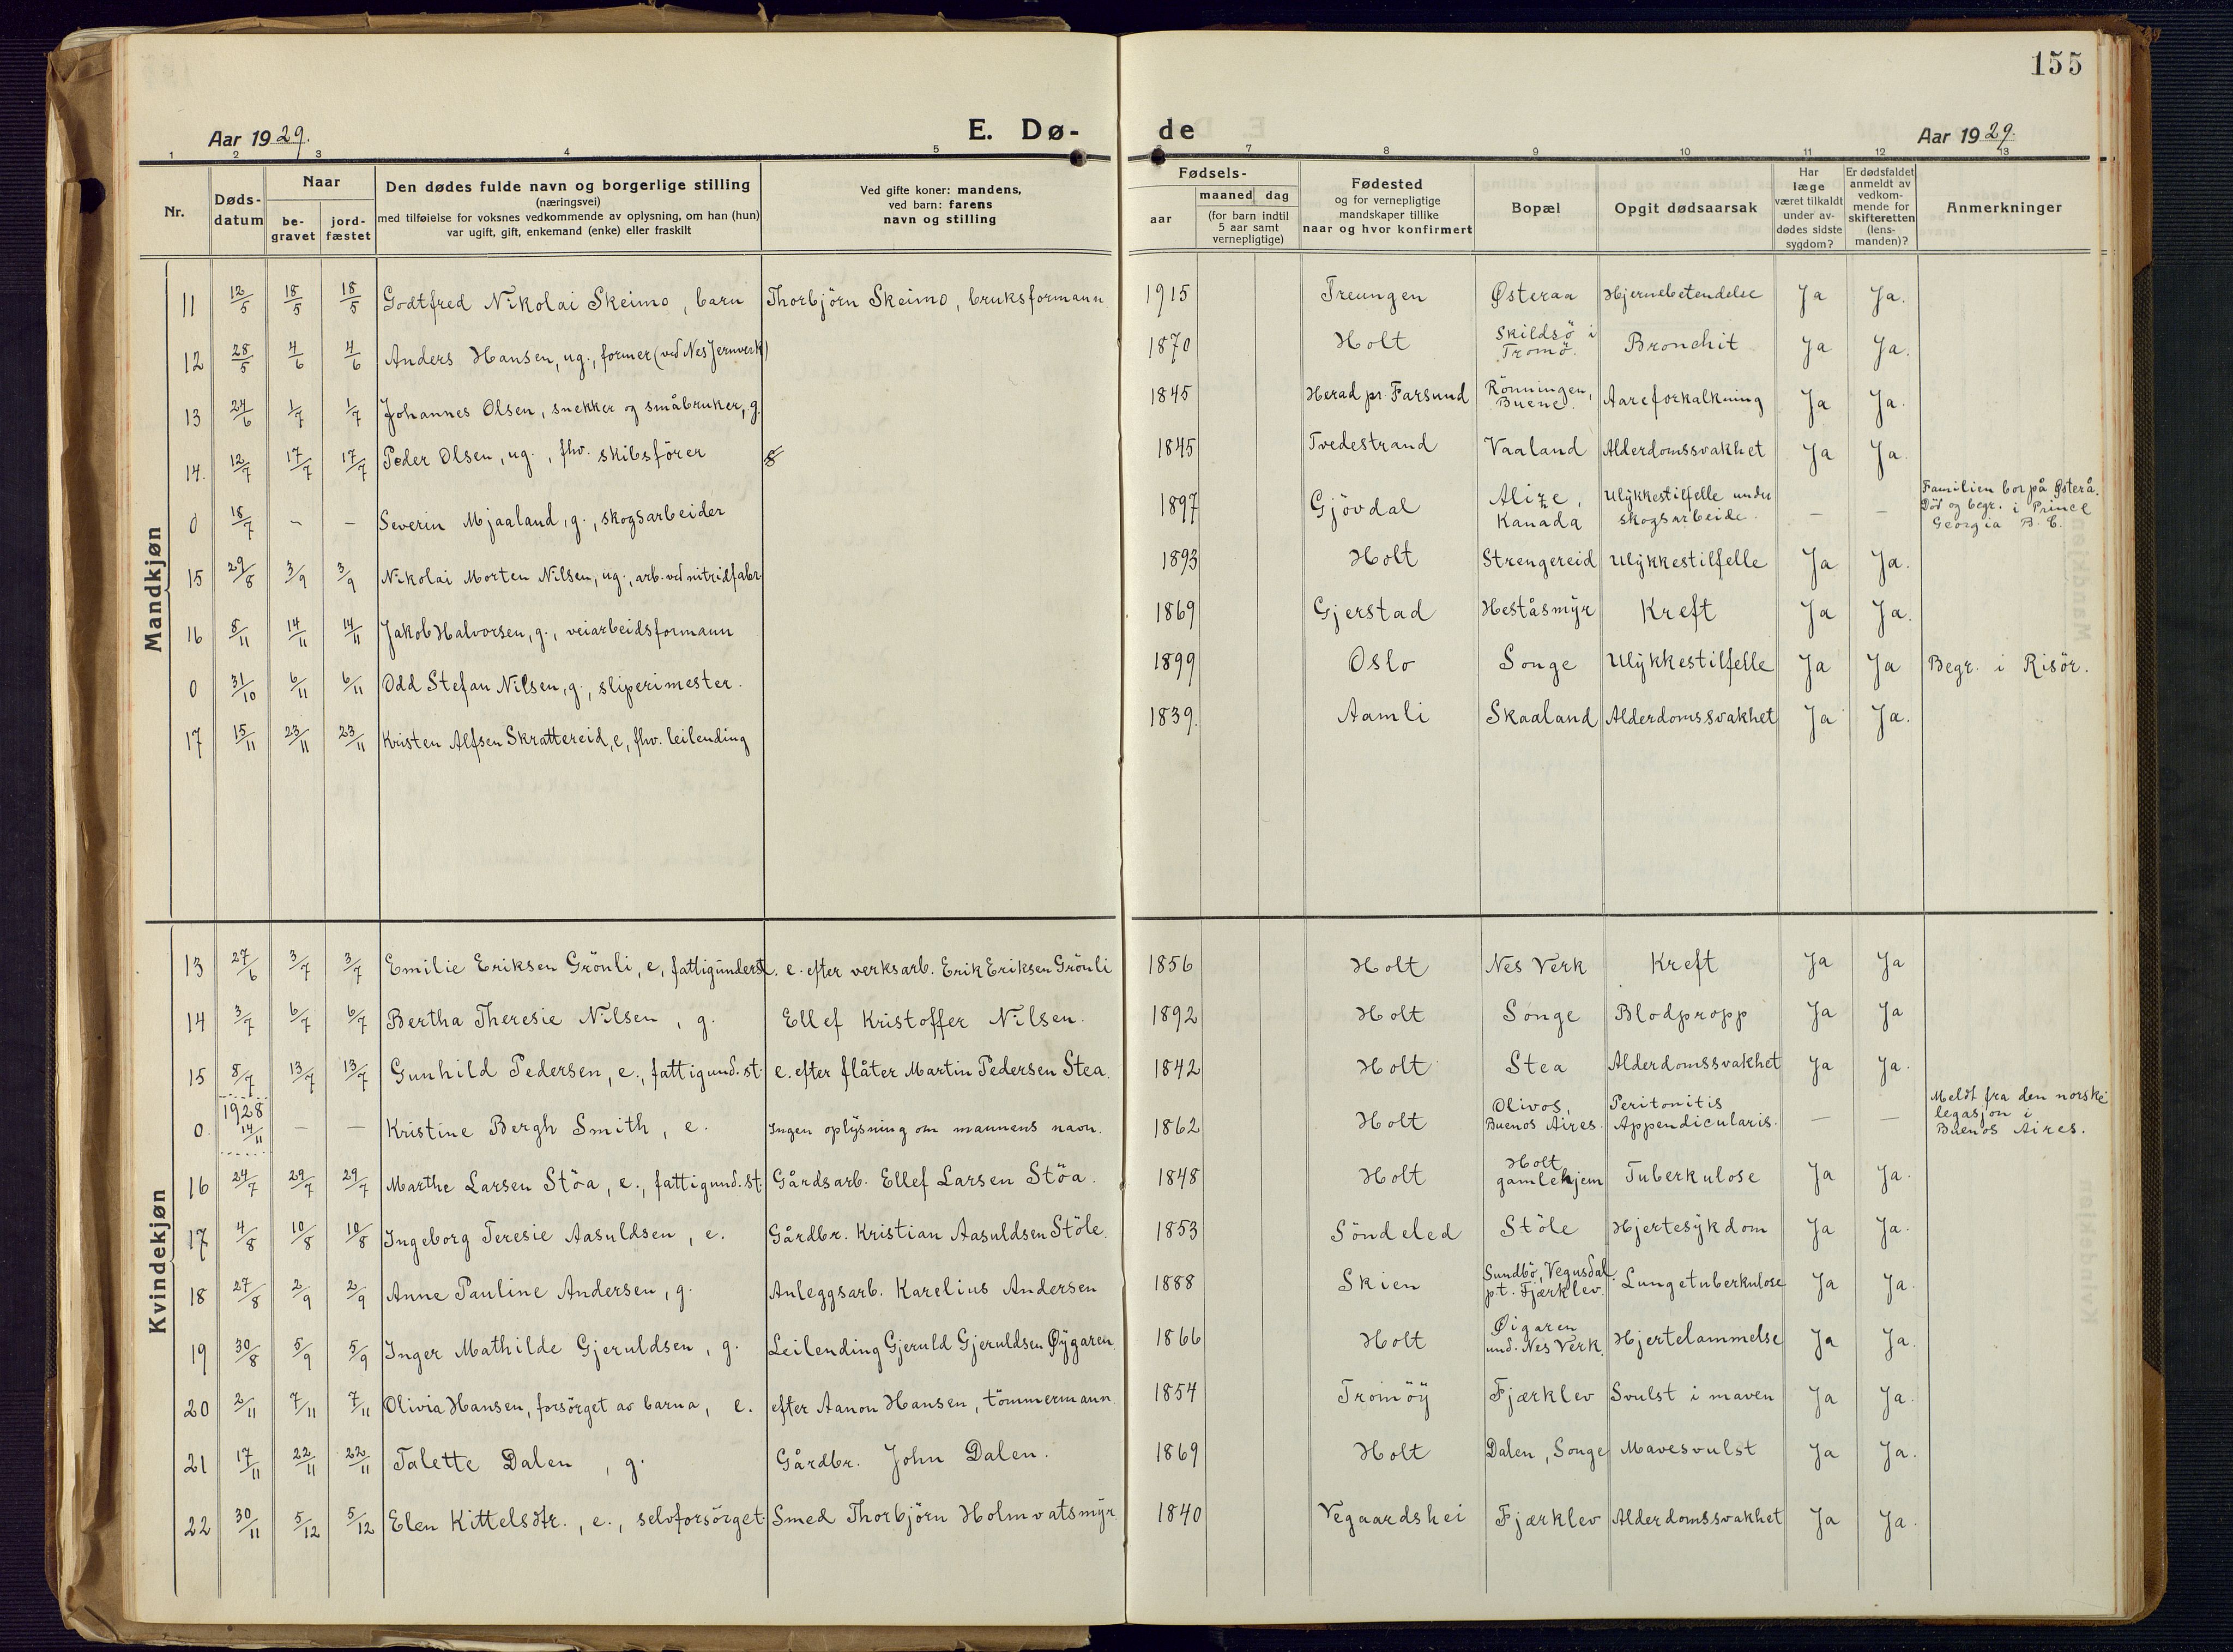 155
Aar 1929.
E. Dø-
de
Aar 1929.
1 2 3 4 5 7 8 9 10 11 12 13
Nr.
Døds-
datum
Naar
be-
gravet
jord-
fæstet
Den dødes fulde navn og borgerlige stilling
(næringsvei)
med tilføielse for voksnes vedkommende av oplysning, om han (hun)
var ugift, gift, enkemand (enke) eller fraskilt
Ved gifte koner: mandens,
ved barn: farens
navn og stilling
Fødsels-
aar
maaned dag
(for barn indtil
5 aar samt
vernepligtige)
Fødested
og for vernepligtige
mandskaper tillike
naar og hvor konfirmert
Bopæl
Opgit dødsaarsak
Har
læge
været tilkaldt
under av-
dødes sidste
sygdom?
Er dødsfaldet
anmeldt av
vedkom-
mende for
skifteretten
(lens-
manden)?
Anmerkninger
Mandkjøn
11 12/5 18/5 18/5 Godtfred Nikolai Skeimo, barn Thorbjörn Skeimo, bruksformann 1915 Treungen Østeraa Hjernebetendelse Ja Ja.
12 28/5 4/6 4/6 Anders Hansen, ug., former (ved Nes Jernverk) 1870 Holt Skildsö i Tromö. Bronchit Ja Ja.
13 24/6 1/7 1/7 Johannes Olsen, snekker og småbruker, g. 1845 Herad pr. Farsund Rönningen, Buene. Aareforkalkning Ja Ja.
14. 12/7 17/7 17/7 Peder Olsen, ug., fhv. skibsförer 1845 Tvedestrand Vaaland Alderdomssvakhet Ja Ja.
0 18/7 – – Severin Mjaaland, g., skogsarbeider 1897 Gjövdal Alize, Kanada Ulykkestilfelle under skogsarbeide. – – Familien bor på Østerå. Död og begr. i Prince Georgia B. C.
15 29/8 3/9 3/9 Nikolai Morten Nilsen, ug., arb. ved nitridfabr. 1893 Holt Strengereid Ulykkestilfelle Ja Ja.
16 8/11 14/11 14/11 Jakob Halvorsen, g., veiarbeidsformann 1869 Gjerstad Heståsmyr Kreft Ja Ja.
0 31/10 6/11 6/11 Odd Stefan Nilsen, g., sliperimester. 1899 Oslo Songe Ulykkestilfelle Ja Ja Begr. i Risör.
17 15/11 23/11 23/11 Kristen Alfsen Skrattereid, e, fhv. leilending 1839. Aamli Skaaland Alderdomssvakhet Ja Ja.
Kvindekjøn
13 27/6 3/7 3/7 Emilie Eriksen Grönli, e, fattigunderst. e. efter verksarb. Erik Eriksen Grönli 1856 Holt Nes Verk Kreft Ja Ja
14 3/7 6/7 6/7 Bertha Theresie Nilsen, g. Ellef Kristoffer Nilsen. 1892 Holt Songe Blodpropp Ja Ja
15 8/7 13/7 13/7 Gunhild Pedersen, e., fattigund.st. e. efter flåter Martin Pedersen Stea. 1842 Holt Stea Alderdomssvakhet Ja Ja.
0 1928 14/11 – – Kristine Bergh Smith, e. Ingen oplysning om mannens navn. 1862 Holt Olivos, Buenos Aires. Peritonitis Appendicularis. – – Meldt fra den norske legasjon i Buenos Aires.
16 24/7 29/7 29/7 Marthe Larsen Stöa, e., fattigund.st. Gårdsarb. Ellef Larsen Stöa. 1848 Holt Holt gamlehjem Tuberkulose Ja Ja.
17 4/8 10/8 10/8 Ingeborg Teresie Aasuldsen, e. Gårdbr. Kristian Aasuldsen Stöle. 1853 Söndeled Stöle Hjertesykdom Ja Ja.
18 27/8 2/9 2/9 Anne Pauline Andersen, g. Anleggsarb. Karelius Andersen 1888 Skien Sundbö, Vegusdal. p.t. Fjærklev. Lungetuberkulose Ja Ja.
19 30/8 5/9 5/9 Inger Mathilde Gjeruldsen, g. Leilending Gjeruld Gjeruldsen Øygaren. 1866 Holt Øigaren und. Nes Verk. Hjertelammelse Ja Ja.
20 2/11 7/11 7/11 Olivia Hansen, forsörget av barna, e. efter Aanon Hansen, tömmermann. 1854 Tromöy Fjærklev Svulst i maven Ja Ja.
21 17/11 22/11 22/11 Talette Dalen, g. Gårdbr. John Dalen. 1869 Holt Dalen, Songe Mavesvulst Ja Ja.
22 30/11 5/12 5/12 Elen Kittelsdtr., e., selvforsörget. Smed Thorbjörn Holmvatsmyr 1840 Vegaardshei Fjærklev Alderdomssvakhet Ja Ja.